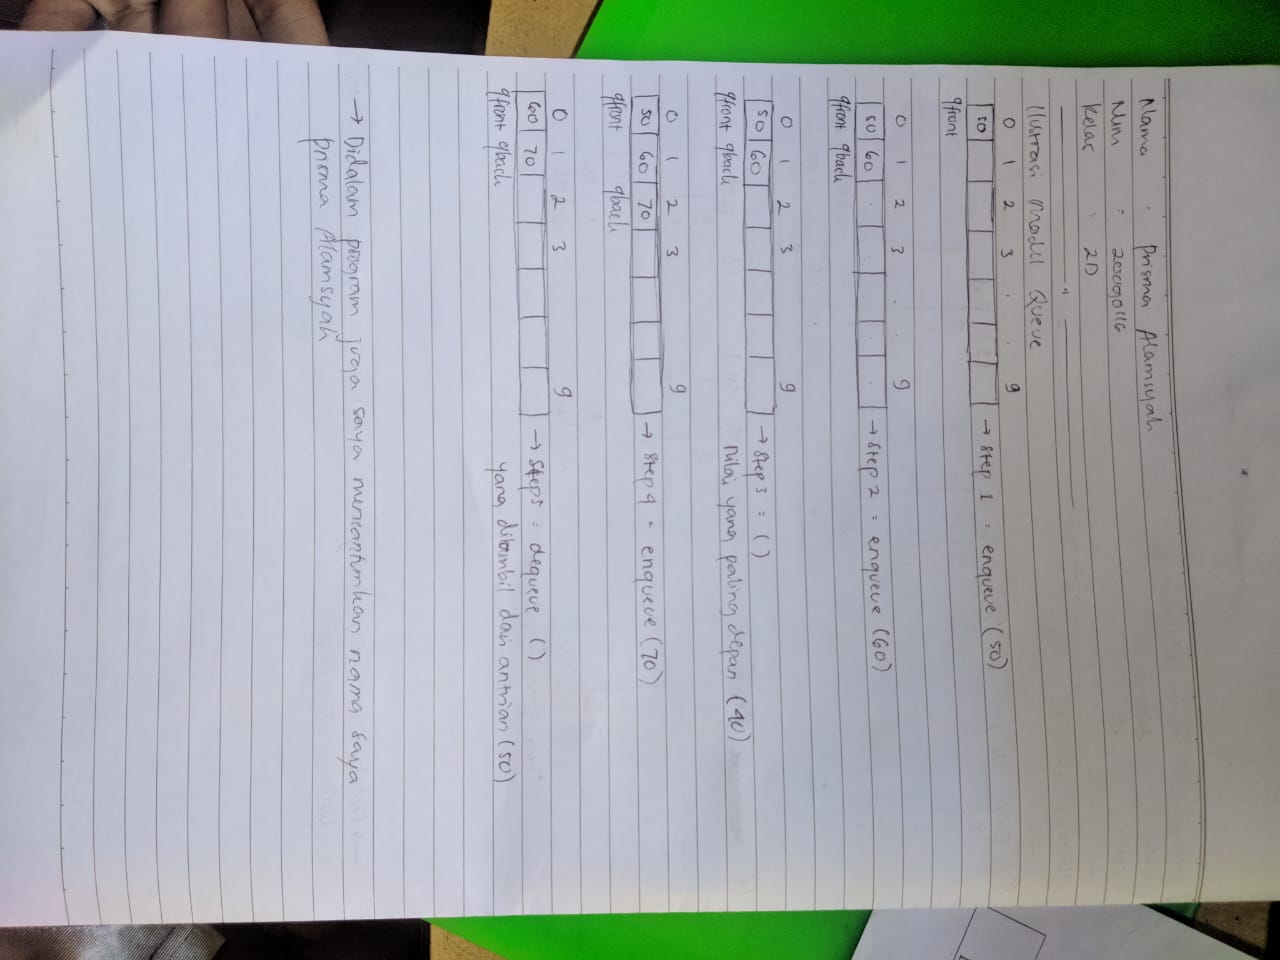 Nama : Prisma Alamsyah
Nim : 20090116
Kelas : 2D
Ilustrasi Model Queue
0 1 2 3 . . 9
50 → Step 1 : enqueue (50)
qfront
0 1 2 3 . . 9
50 60 . . . . → Step 2 : enqueue (60)
qfront qback
0 1 2 3 9
50 60 → Step 3 = ( )
qfront qback Nilai yang paling depan (40)
0 1 2 3 9
50 60 70 → Step 4 = enqueue (70)
qfront qback
0 1 2 3 9
60 70 → Step 5 : dequeue ( )
qfront qback yang diambil dari antrian (50)
→ Didalam program juga saya mencantumkan nama saya
Prisma Alamsyah